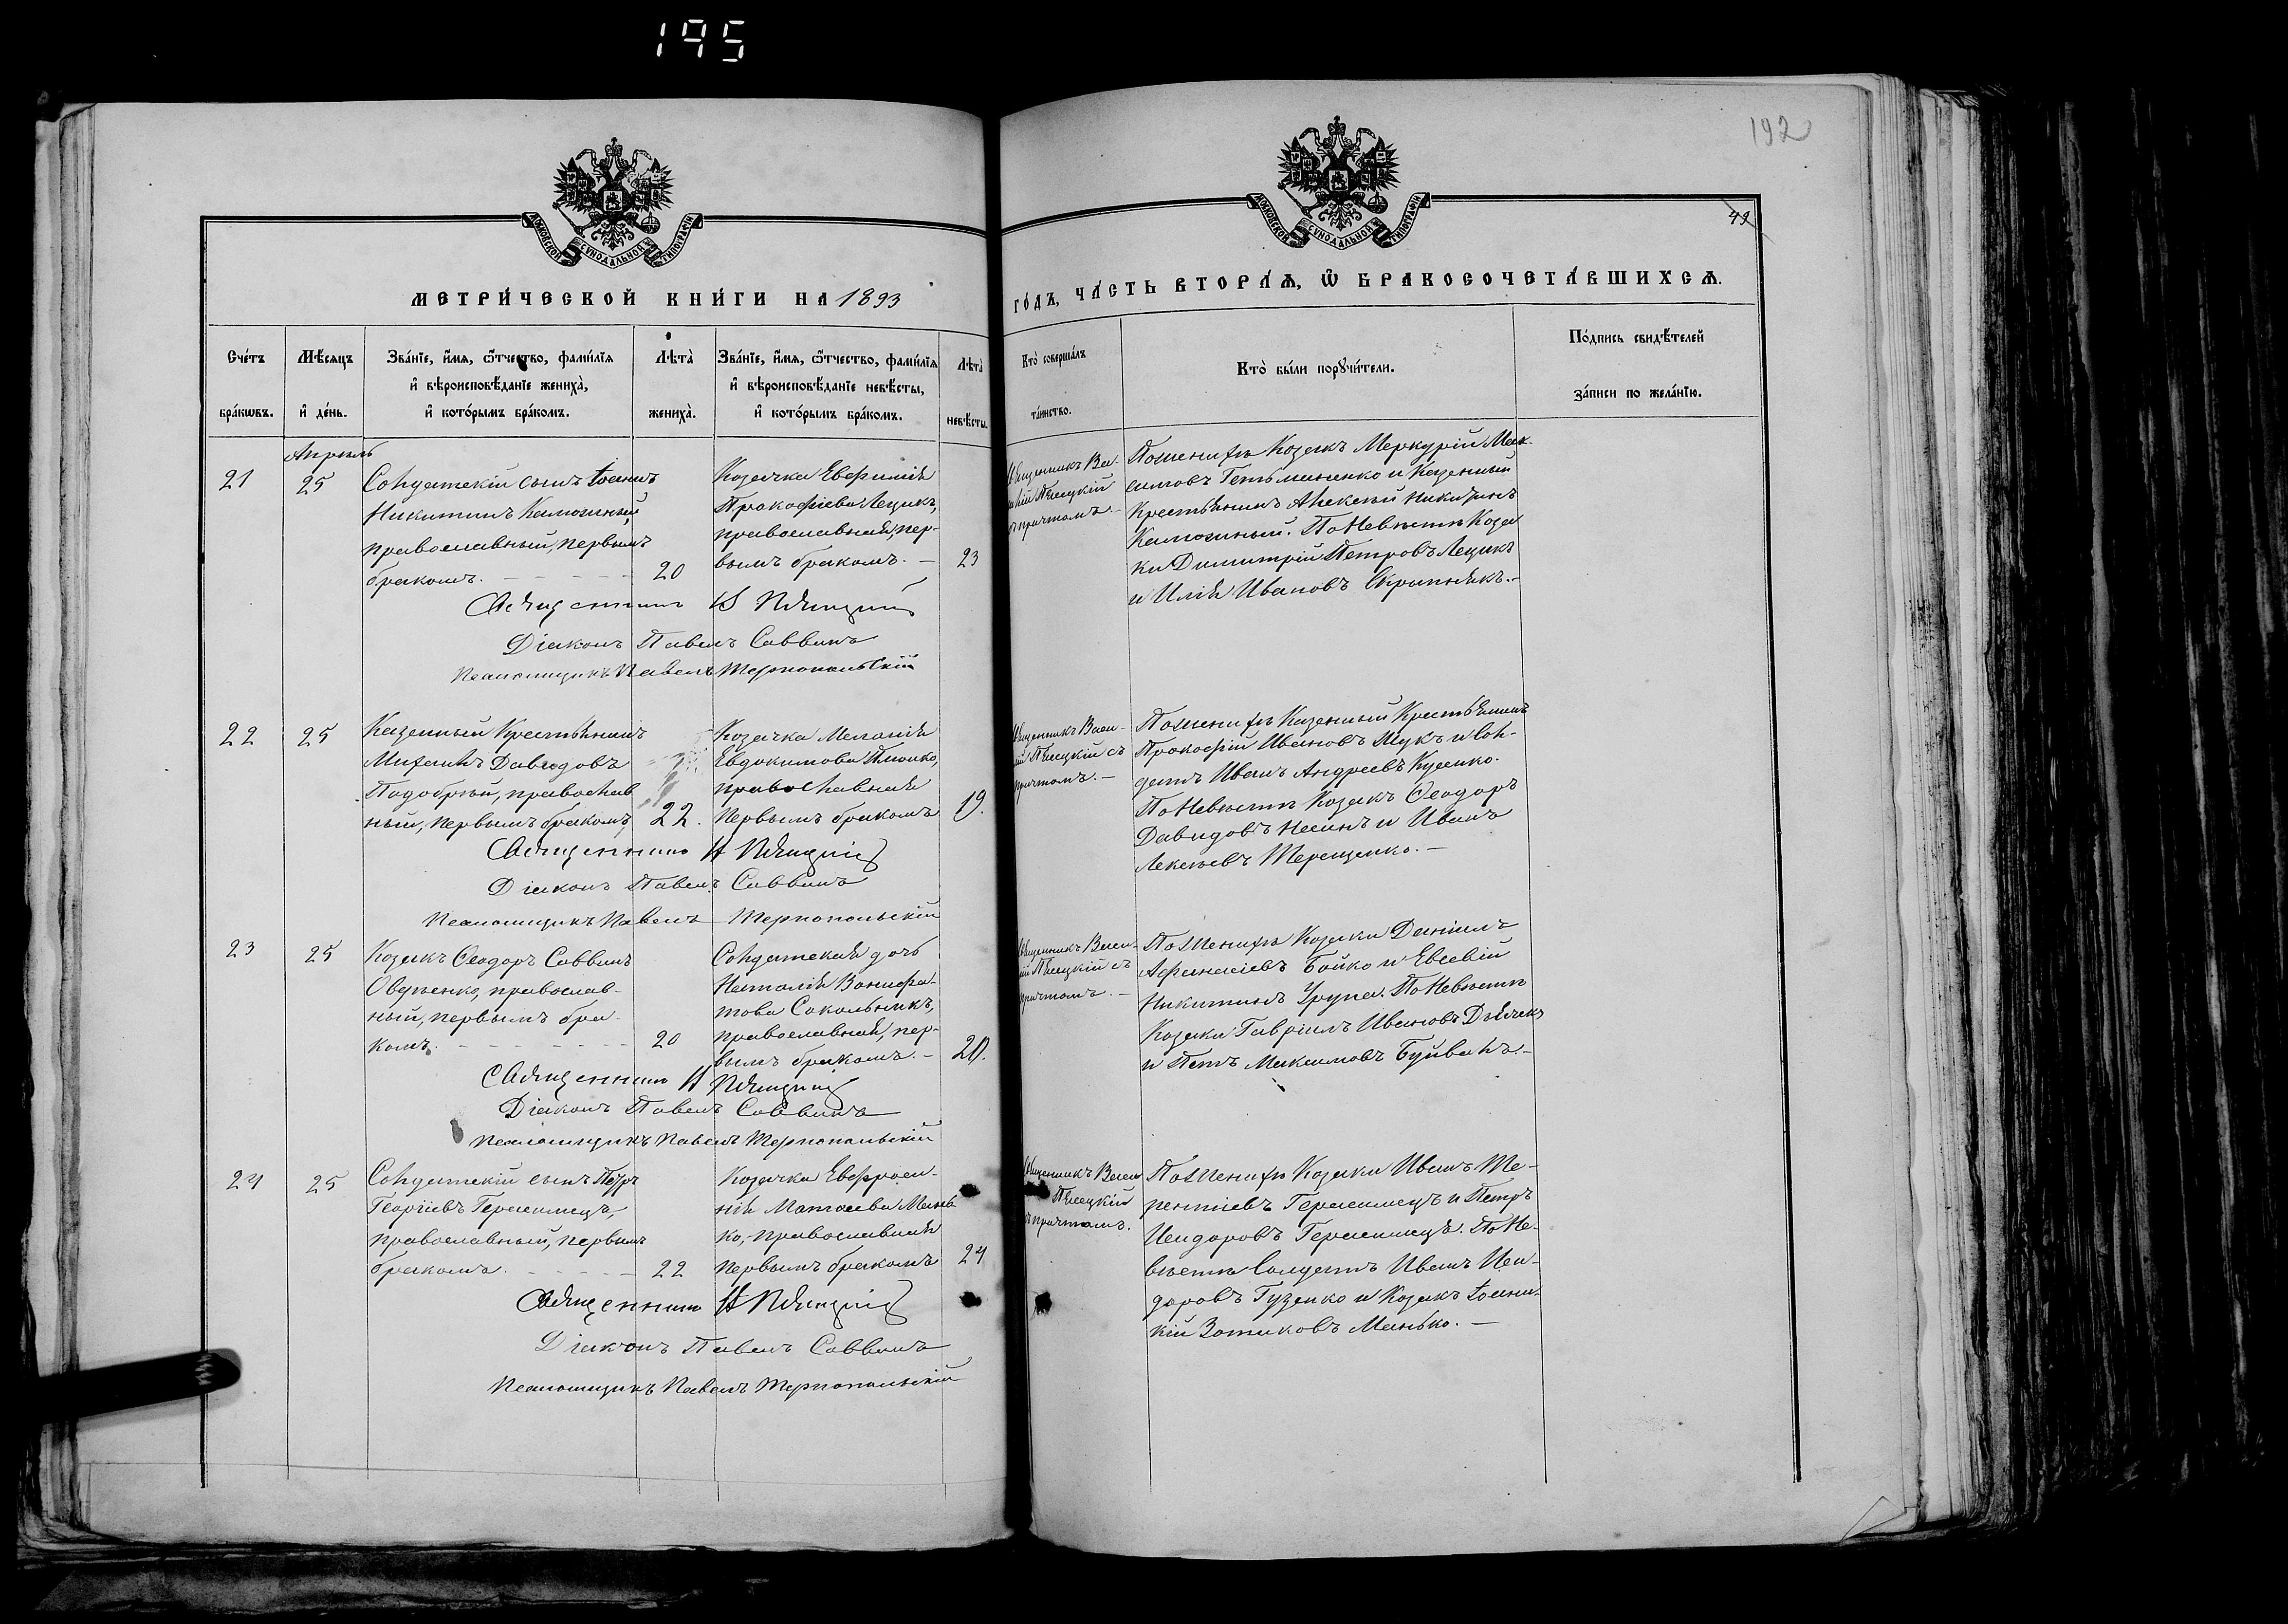 195
192
49
МОСКОВСКОЙ СѴНОДАЛЬНОЙ ТИПОГРАФІИ
МОСКОВСКОЙ СѴНОДАЛЬНОЙ ТИПОГРАФІИ
МЕТРИ́ЧЕСКОЙ КНИ́ГИ НА 1893
ГО́ДЪ, ЧА́СТЬ ВТОРА́Ѧ, Ѽ БРАКОСОЧЕТА́ВШИХСѦ.
Сче́тъ бра́кѡвъ.
Мѣ́сяцъ и҆ де́нь.
Зва́нїе, и҆́мя, ѻ҆́тчество, фами́лїя
и҆ вѣроисповѣ́данїе жениха̀,
и҆ кото́рымъ бра́комъ.
Лѣта̀ жениха̀.
Зва́нїе, и҆́мя, ѻ҆́тчество, фами́лїя
и҆ вѣроисповѣ́данїе невѣ́сты,
и҆ кото́рымъ бра́комъ.
Лѣта̀ невѣ́сты.
Кто̀ соверша́лъ та́инство.
Кто̀ бы́ли порꙋчи́тели.
По́дпись свидѣ́телей
за́писи по жела́нїю.
Апрель
21
25
Солдатскій сынъ Іоаннъ
Никитинъ
православный, первымъ
бракомъ.
20
Козачка Евфимія
Прокофіева Лещикъ,
православная, пер-
вымъ бракомъ. —
23
Священникъ Ва-
силій Пясецкій
съ причтомъ. —
Пожениху Козакъ Меркурій Мак-
симовъ Гетьманенко и Казенный
Крестьянинъ Алексѣй Никитинъ
Поневѣстѣ Коза
ки Димитрій Петровъ Лещикъ
и Илія Ивановъ Скрыпнякъ. —
Священникъ В Пясецкій
Діаконъ Павелъ Саввинъ
Псаломщикъ Павелъ Тернопольскій
22
25
Казенный Крестьянинъ
Михаилъ Давидовъ
Подобрѣй, православ
ный, первымъ бракомъ,
22.
Козачка Меланія
Евдокимова
православная
первымъ бракомъ
19.
Священникъ Васи-
лій Пясецкій съ
причтомъ. —
Пожениху Казенный Крестьянинъ
Прокофій Ивановъ Жукъ и Сол-
датъ Иванъ Андреевъ Куценко.
Поневѣстѣ Козакъ Ѳеодоръ
Давидовъ Несинъ и Иванъ
Алексѣевъ Терещенко. —
Священникъ В Пясецкій
Діаконъ Павелъ Саввинъ
Псаломщикъ Павелъ Тернопольскій
23
25
Козакъ Ѳеодоръ Саввинъ
Овдѣенко, православ-
ный, первымъ бра-
комъ.
20
Солдатская дочь
Наталія Вонифа-
това Сокольникъ,
православная, пер-
вымъ бракомъ. —
20.
Священникъ Васи-
лій Пясецкій съ
причтомъ. —
Пожениху Козаки Даніилъ
Афанасіевъ Бойко и Евсевій
Никитинъ Урупа. Поневѣстѣ
Козаки Гавріилъ Ивановъ Дьячекъ
и Петръ Максимовъ Буйвалъ. —
Священникъ В Пясецкій
Діаконъ Павелъ Саввинъ
Псаломщикъ Павелъ Тернопольскій
24
25
Солдатскій сынъ Петръ
Георгіевъ Герасимецъ,
православный, первымъ
бракомъ.
22
Козачка Евфроси-
нія Матѳеева Мань
ко, православная
первымъ бракомъ
24
Священникъ Васи
Пясецкій
съ причтомъ.
Пожениху Козаки Иванъ Те-
рентіевъ Герасимецъ и Петръ
Исидоровъ Герасимецъ. Поне-
вѣстѣ Солдатъ Иванъ Иси-
доровъ Гузенко и Козакъ Іоанни-
кій Зотиковъ Манько. —
Священникъ В Пясецкій
Діаконъ Павелъ Саввинъ
Псаломщикъ Павелъ Тернопольскій